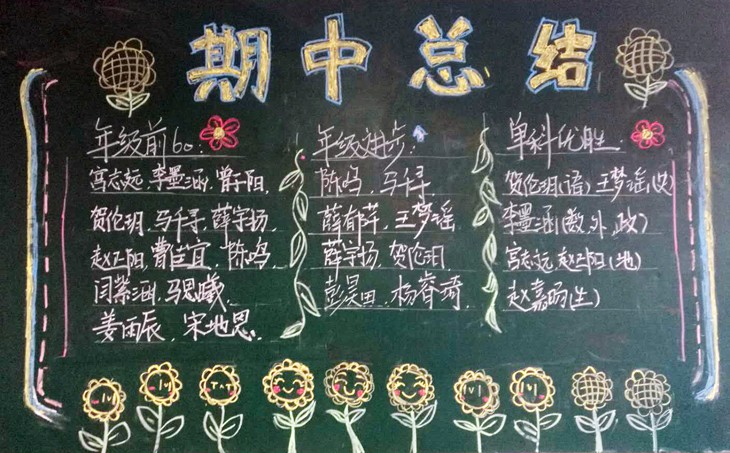 期中总结
年级前60:
宫志远, 李墨涵, 曾子阳,
贺伦玥, 马千寻, 薛宇扬,
赵正阳, 曹芷宜, 陈鸣,
闫紫涵, 马思曦,
姜雨辰, 宋地恩.
年级进步:
陈鸣, 马千寻,
薛有萍, 王梦瑶,
薛宇扬, 贺伦玥,
彭昊田, 杨睿琦,
单科优胜:
贺伦玥(语) 王梦瑶(史)
李墨涵(数、外、政)
宫志远, 赵正阳(地)
赵嘉旸(生)